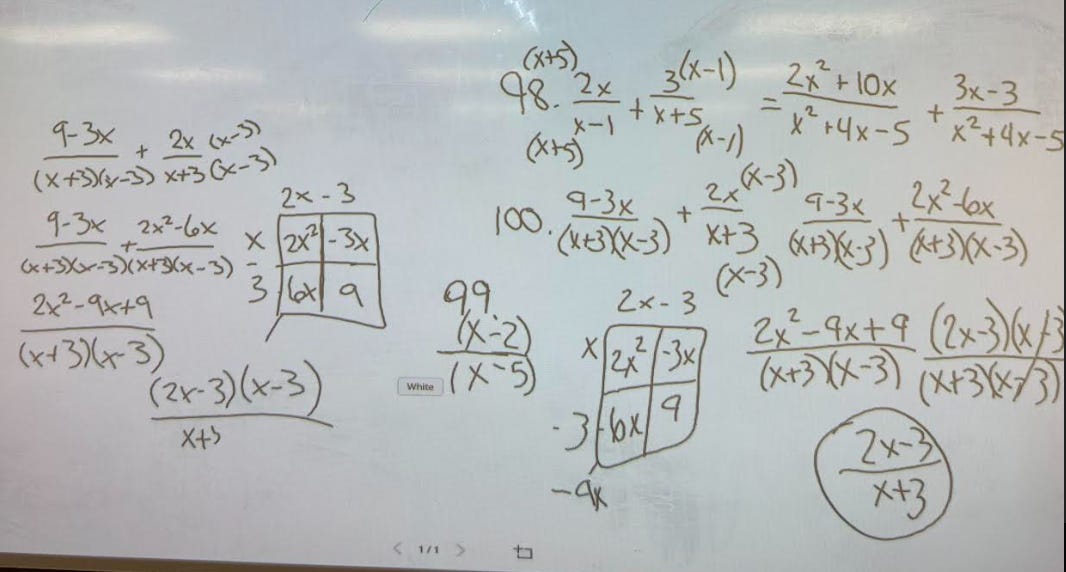 9-3x/(x+3)(x-3) + 2x(x-3)/x+3(x-3)
9-3x/(x+3)(x-3) + 2x²-6x/(x+3)(x-3)
2x²-9x+9/(x+3)(x-3)
(2x-3)(x-3)/x+3
2x - 3
x 2x² -3x
- 3 6x 9
98. (x+5) 2x/x-1 (x+5) + 3(x-1)/x+5 (x-1) = 2x²+10x/x²+4x-5 + 3x-3/x²+4x-5
100. 9-3x/(x+3)(x-3) + 2x(x-3)/x+3 (x-3) 9-3x/(x+3)(x-3) + 2x²-6x/(x+3)(x-3)
99. (x-2)/(x-5)
White
2x - 3
x 2x² -3x
-3 -6x 9
-9x
2x²-9x+9/(x+3)(x-3) (2x-3)(x-3)/(x+3)(x-3)
2x-3/x+3
< 1/1 >